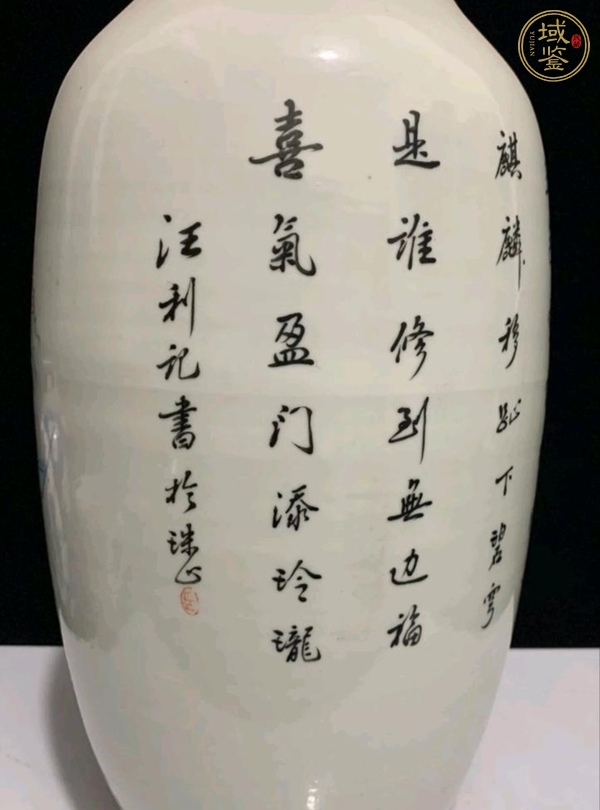 麒麟移趾下碧穹
是谁修到無边福
喜氣盈门添玲瓏
汪利记書於珠山
域鉴
YUJIAN